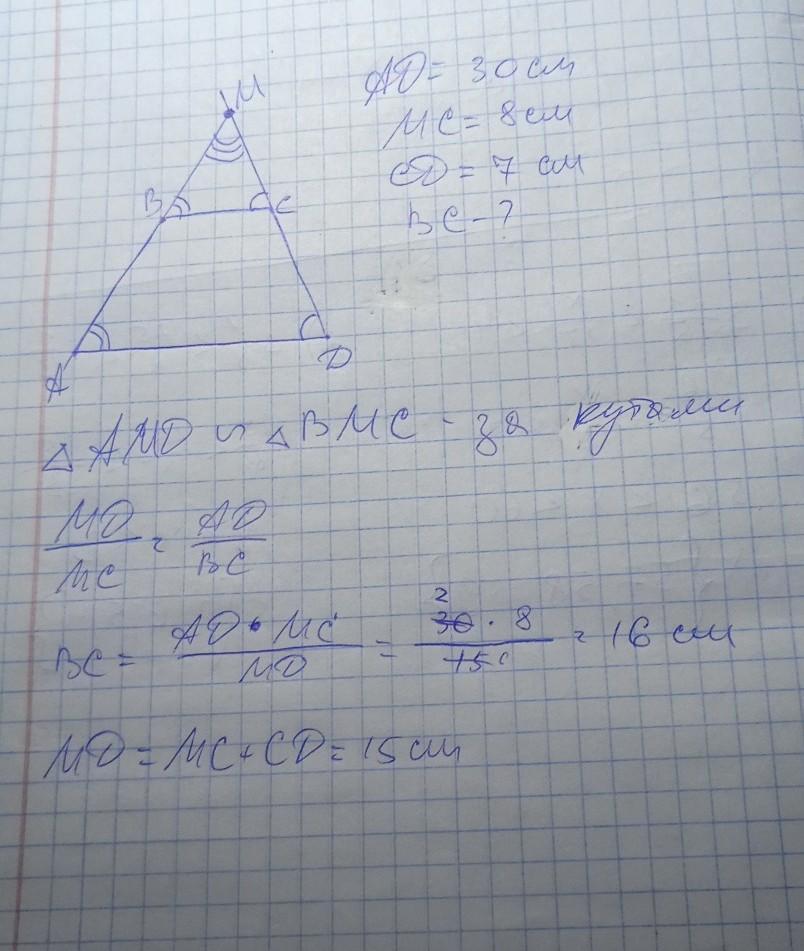 M
B
C
A
D
AD = 30 см
MC = 8 см
CD = 7 см
BC - ?
△ AMD ∽ △ BMC - за кутами
MD/MC = AD/BC
BC = AD • MC/MD = 2 30 · 8/15 = 16 см
MD = MC + CD = 15 см